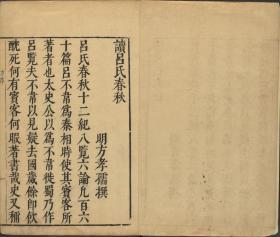 讀呂氏春秋
明方孝孺撰
呂氏春秋十二紀八覽六論凢百六
十篇呂不韋爲秦相時使其賓客所
著者也太史公以爲不韋徙蜀乃作
呂覽夫不韋以見疑去國歲餘卽飮
酖死何有賓客何暇著書哉史又稱